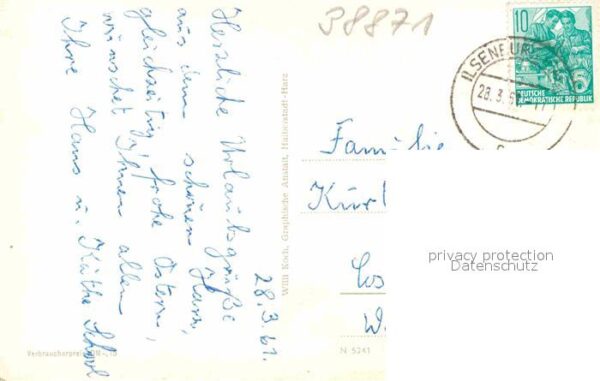 38871
10
DEUTSCHE
DEMOKRATISCHE REPUBLIK
ILSENBURG
28.3.6
28.3.61.
Herzliche Urlaubsgrüße
aus dem schönen Harz,
gleichzeitig frohe Ostern,
wünschet Ihnen allen
Ihre Hans u. Käthe
Familie
Kurt
privacy protection
Datenschutz
Willi Koch, Graphische Anstalt, Halberstadt-Harz
Verbraucherpreis
N 5241